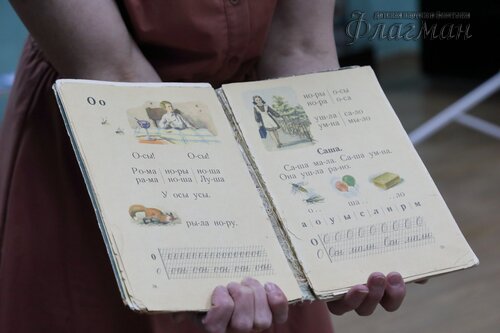 Флагман
Оо
О-сы! О-сы!
Ро-ма но-ры но-ша
ра-ма но-ша Лу-ша
У осы усы.
ры-ла но-ру.
но-ры о-сы
но-ра о-са
уш-ла са-ло
ум-на мы-ло
Саша.
Са-ша ма-ла. Са-ша ум-на.
Она уш-ла ра-но.
о... ша... ...ло
а о у ы с л н р м